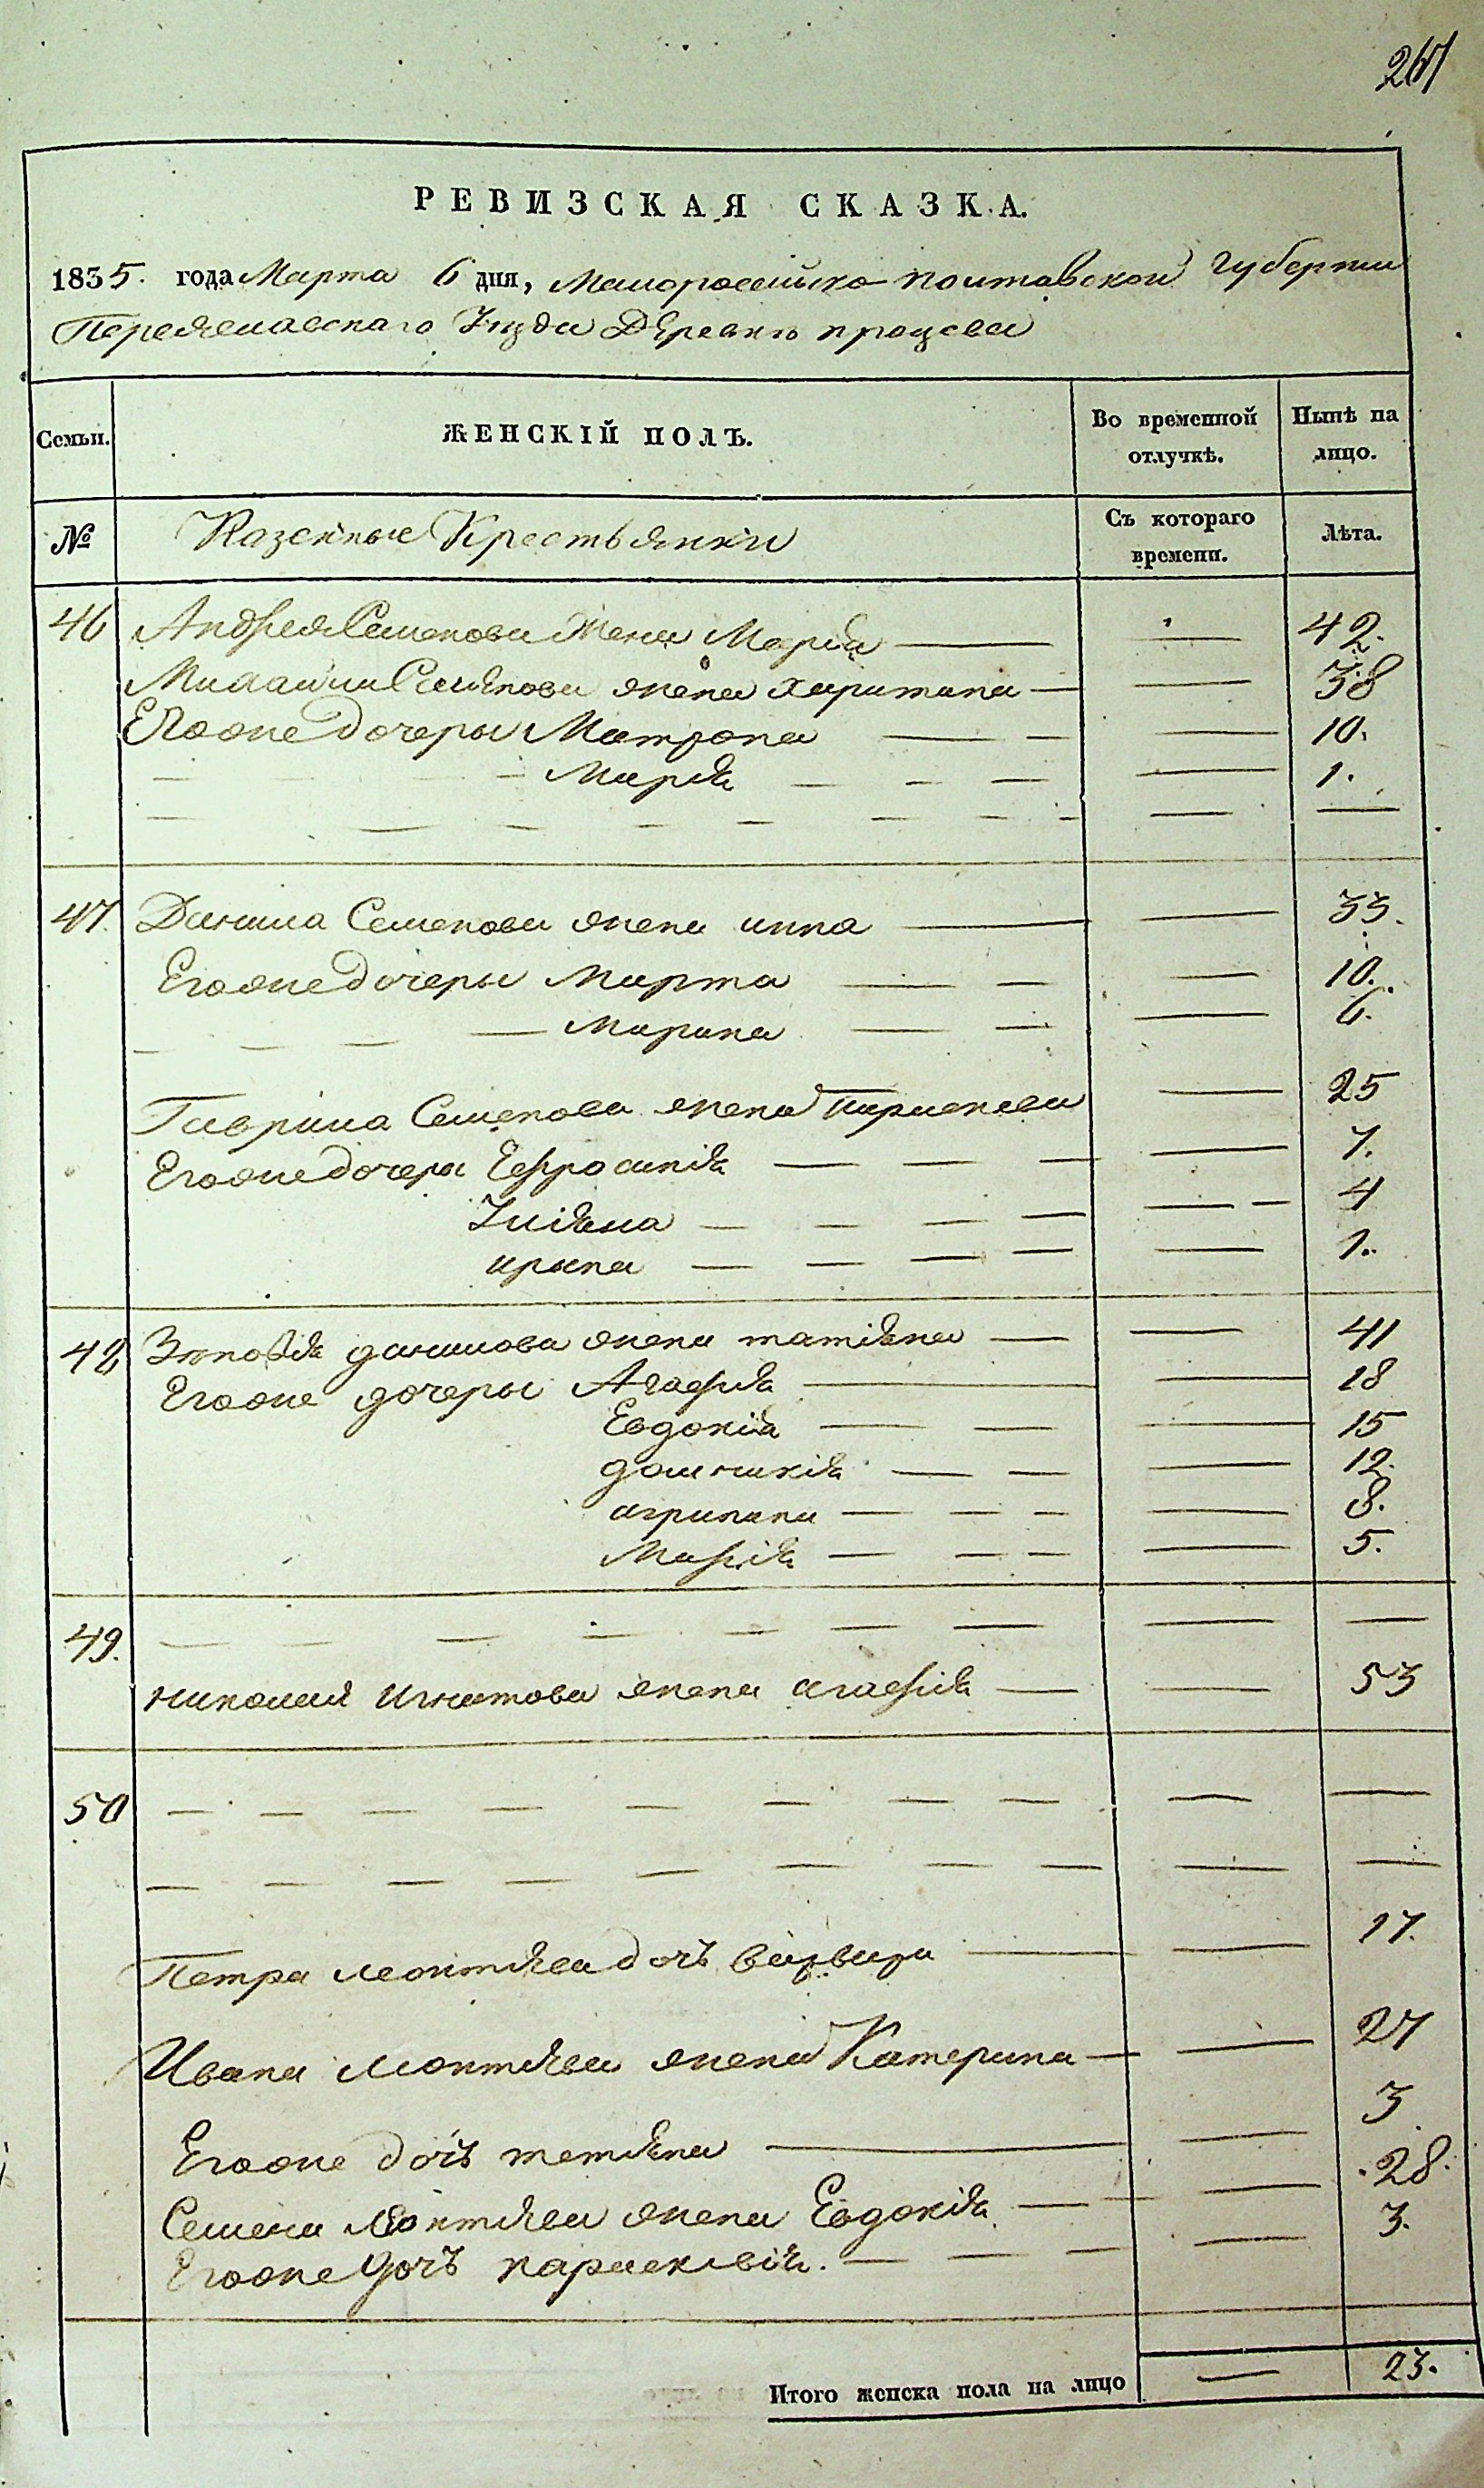 267
РЕВИЗСКАЯ СКАЗКА.
1835. года Марта 6 дня, Малоросийско Полтавской Губернии
Переяславскаго Уезда Деревне процева
Семьи.
ЖЕНСКІЙ ПОЛЪ.
Во временной отлучкѣ.
Нынѣ на лицо.
№
Казенные Крестьянки
Съ котораго времени.
Лѣта.
46 Андрея Семенова Жена Марія — — 42.
Семенова жена харитина — — 38
Егоже дочеры Матрона — — — 10.
— — Марія — — — — 1.
47. Данила Семенова жена анна — — 33.
Егоже дочеры Марта — — — 10.
— — — — Марина — — — 6.
Гаврила Семенова жена Параскева — 25
Егоже дочеры Ефросинія — — — — 7.
Уліяна — — — — — — 4
ирина — — — — — 1.
48 Зеновія данилова жена татіяна — — 41
Егоже дочеры Агафія — — 18
Евдокія — — — 15
домникія — — — 12.
агрипина — — — — 8.
Марія — — — — 5.
49. — — — — — — — — —
николая игнатова жена агафія — — 53
50 — — — — — — — — — —
— — — — — — — — —
Петра леонтиева дочь варвара — — 17.
Ивана леонтиева жена Катерина — — 27
Егоже дочь татияна — — 3
Семена леонтиева жена Евдокія — — 28.
Егоже дочь параскевія. — — — — 3.
Итого женска пола на лицо — 23.